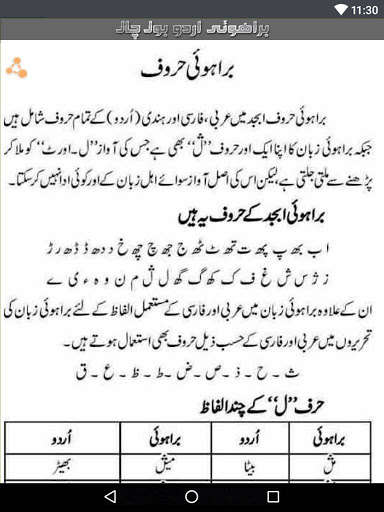 11:30
براھوئی اُردو بول چال
براہوئی حروف
براہوئی حروف ابجد میں عربی، فارسی اور ہندی (اُردو) کے تمام حروف شامل ہیں
جبکہ براہوئی زبان کا اپنا ایک اور حروف ’’ڷ‘‘ بھی ہے جس کی آواز ’’ل۔اورٹ‘‘ کو ملا کر
پڑھنے سے ملتی جلتی ہے، لیکن اس کی اصل آواز سوائے اہل زبان کے اور کوئی ادا نہیں کر سکتا۔
براہوئی ابجد کے حروف یہ ہیں
ا ب بھ پ پھ ت تھ ٹ ٹھ ج جھ چ چھ خ د دھ ڈ ڈھ ر ڑ
ز ژ س ش غ ف ک کھ گ گھ ل ڷ م ن و ہ ء ی ے
ان کے علاوہ براہوئی زبان میں عربی اور فارسی کے مستعمل الفاظ کے لئے براہوئی زبان کی
تحریروں میں عربی اور فارسی کے حسب ذیل حروف بھی استعمال ہوتے ہیں۔
ث ۔ ح ۔ ذ ۔ ص ۔ ض ۔ ط ۔ ظ ۔ ع ۔ ق
حرف ’’ل‘‘ کے چند الفاظ
براہوئی اُردو براہوئی اُردو
مڷ بیٹا میڷ بھیڑ